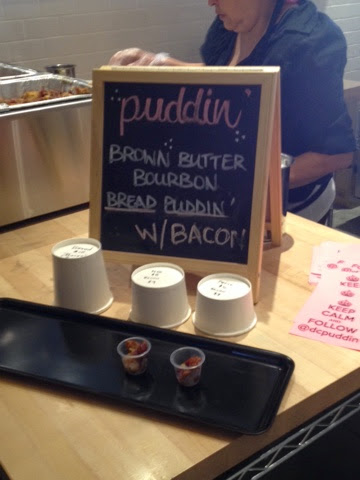 puddin'
BROWN BUTTER
BOURBON
BREAD PUDDIN'
W/BACON
KEEP
CALM
AND
FOLLOW
@dcpuddin